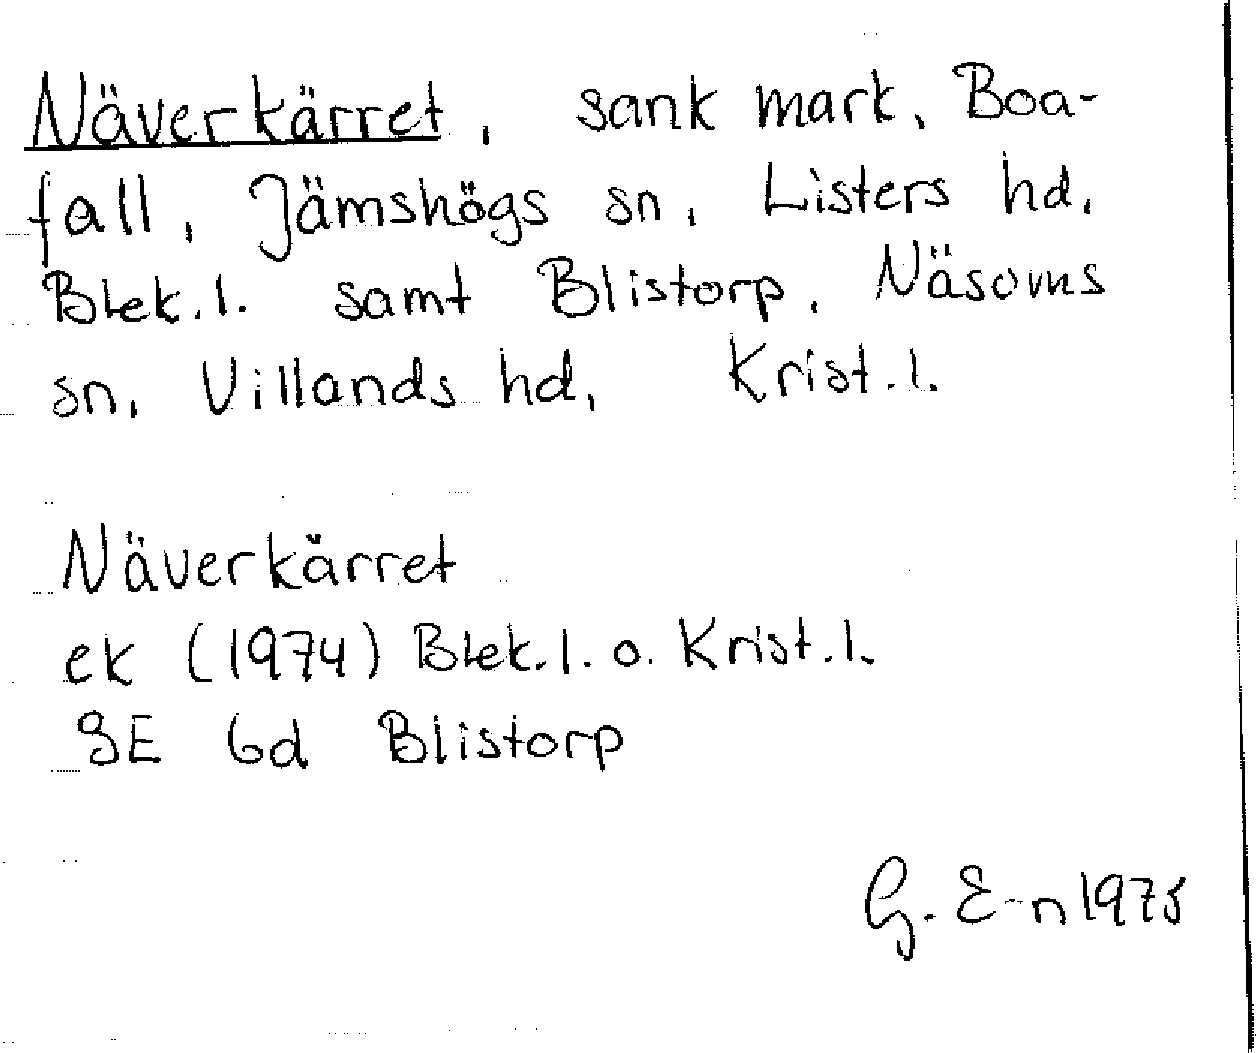 Näverkärret, sank mark, Boa-
fall, Jämshögs sn, Listers hd,
Blek.l. samt Blistorp, Näsums
sn, Villands hd, Krist.l.
Näverkärret
ek (1974) Blek.l. o. Krist.l.
3E 6d Blistorp
G. E-n 1975